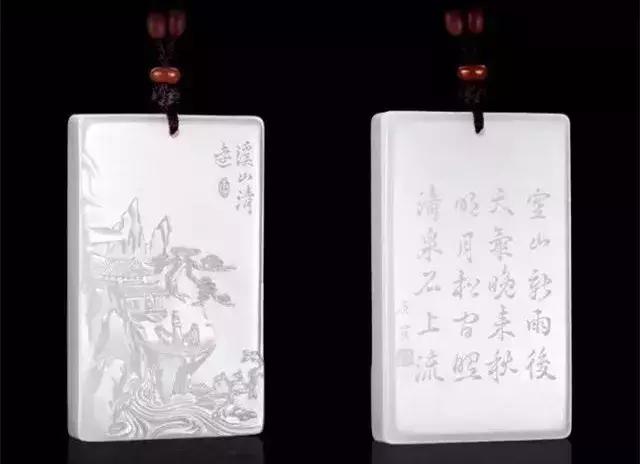 溪山清
远
空山新雨後
天氣晚来秋
明月松间照
清泉石上流